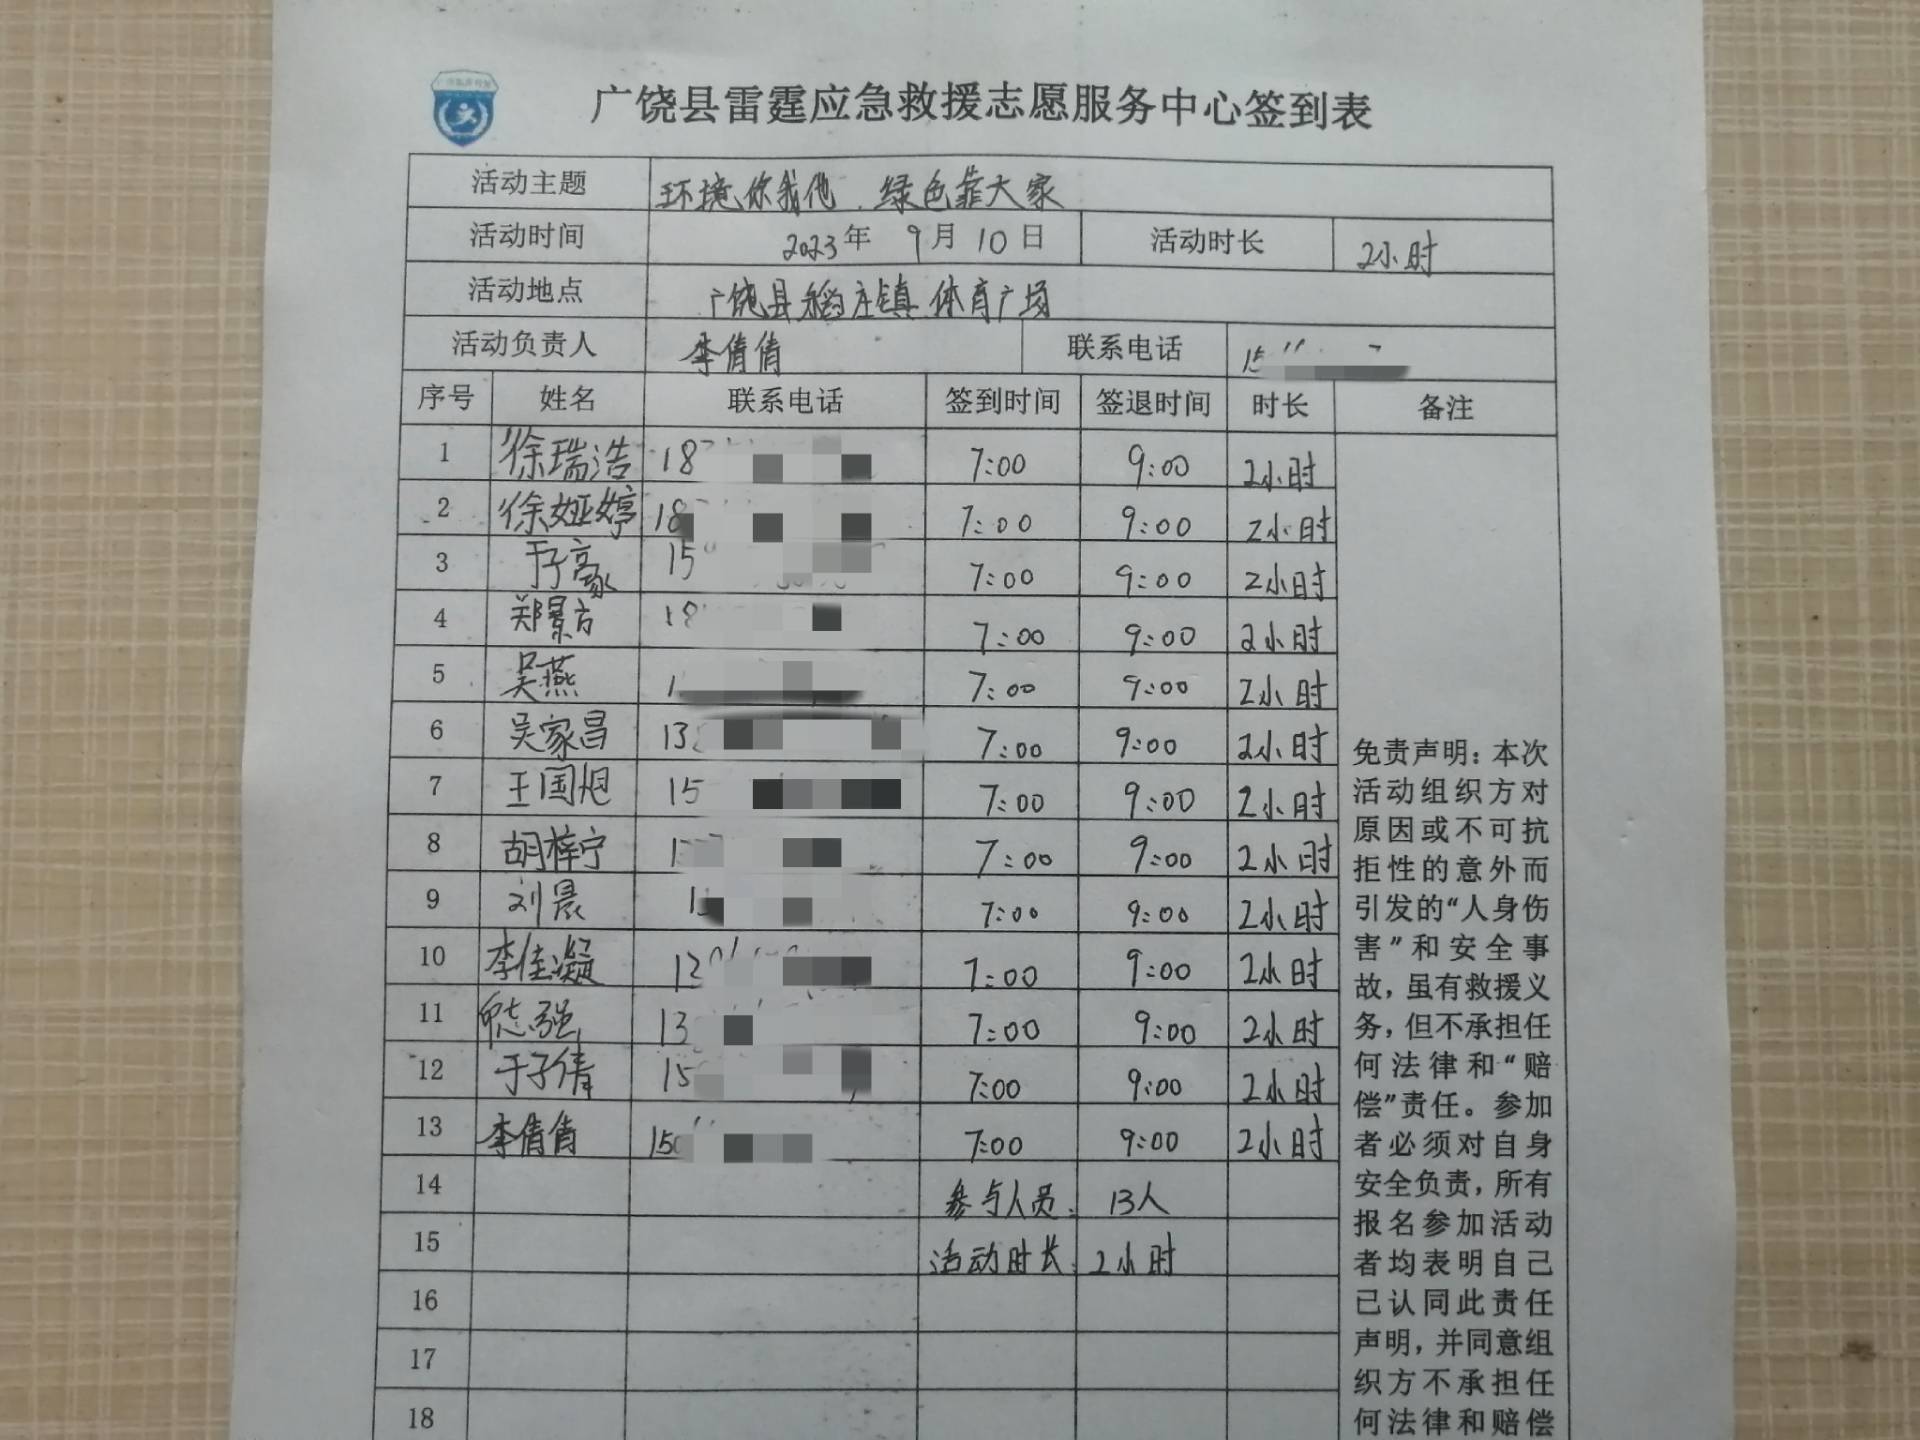 广饶县雷霆应急救援志愿服务中心签到表
活动主题 环境你我他.绿色靠大家
活动时间 2023年 9月10日 活动时长 2小时
活动地点 广饶县稻庄镇体育广场
活动负责人 李倩倩 联系电话 15
序号 姓名 联系电话 签到时间 签退时间 时长 备注
1 徐瑞浩 18 7:00 9:00 2小时
2 徐娅婷 18 7:00 9:00 2小时
3 于子豪 15 7:00 9:00 2小时
4 郑景方 18 7:00 9:00 2小时
5 吴燕 1 7:00 9:00 2小时
6 吴家昌 13 7:00 9:00 2小时
7 王国旭 15 7:00 9:00 2小时
8 胡梓宁 1 7:00 9:00 2小时
9 刘晨 1 7:00 9:00 2小时
10 李佳凝 13 7:00 9:00 2小时
11 志强 13 7:00 9:00 2小时
12 于子倩 15 7:00 9:00 2小时
13 李倩倩 150 7:00 9:00 2小时
14 参与人员: 13人
15 活动时长: 2小时
16
17
18
免责声明:本次
活动组织方对
原因或不可抗
拒性的意外而
引发的“人身伤
害”和安全事
故,虽有救援义
务,但不承担任
何法律和“赔
偿”责任。参加
者必须对自身
安全负责,所有
报名参加活动
者均表明自己
已认同此责任
声明,并同意组
织方不承担任
何法律和赔偿